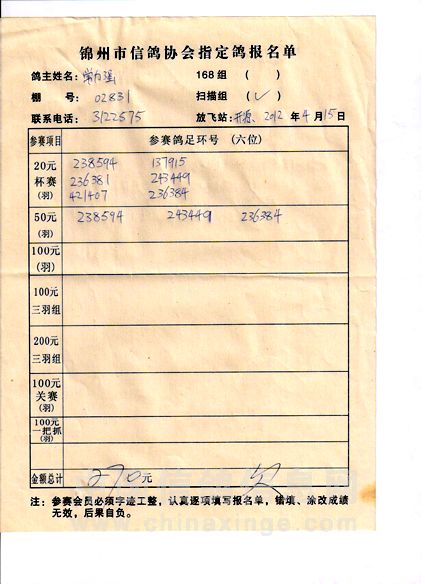 锦州市信鸽协会指定鸽报名单
鸽主姓名: 168组 ( )
棚 号: 02831 扫描组 (✓)
联系电话: 3122575 放飞站: 开原、2012年4月15日
参赛项目 参赛鸽足环号 (六位)
20元 238594 137915
杯赛 236381 243449
(羽) 421407 236384
50元 238594 243449 236384
(羽)
100元
(羽)
100元
三羽组
200元
三羽组
100元
关赛
(羽)
100元
一把抓
(羽)
金额总计 270元 欠
注: 参赛会员必须字迹工整, 认真逐项填写报名单, 错填、涂改成绩
无效, 后果自负。
www.chinaxinge.com